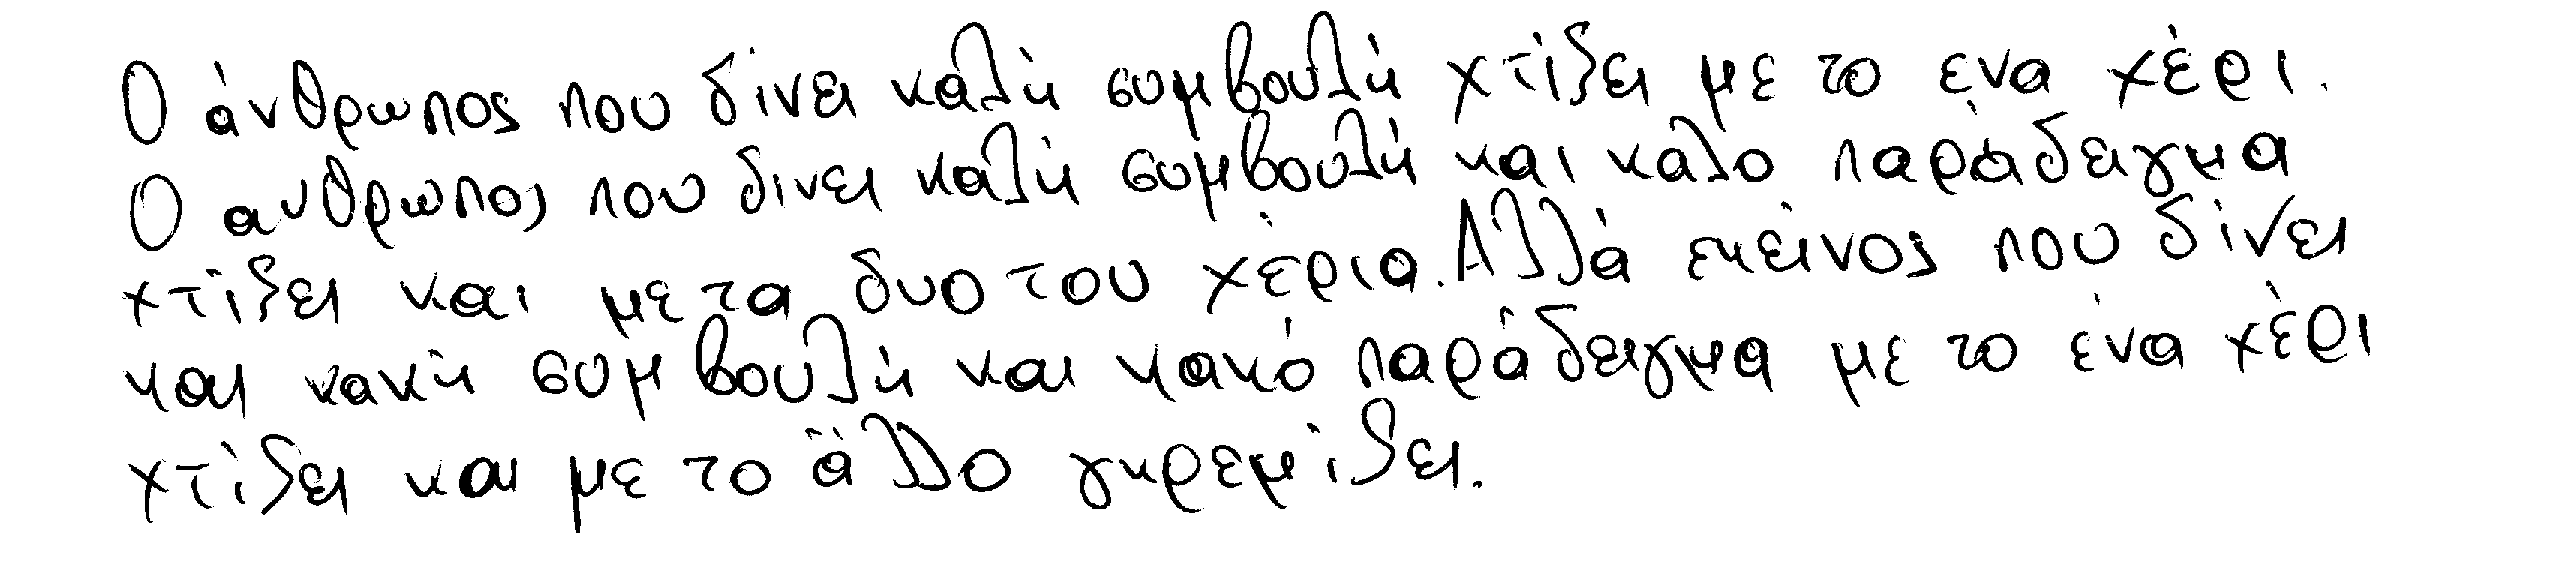 Ο άνθρωπος που δίνει καλή συμβουλή χτίζει με το ένα χέρι.
Ο ανθρωπος που δινει καλή συμβουλή και καλο παράδειγμα
χτίζει και με τα δυο του χέρια. Αλλά εκείνος που δίνει
και κακή συμβουλή και κακό παράδειγμα με το ένα χέρι
χτίζει και με το άλλο γκρεμίζει.